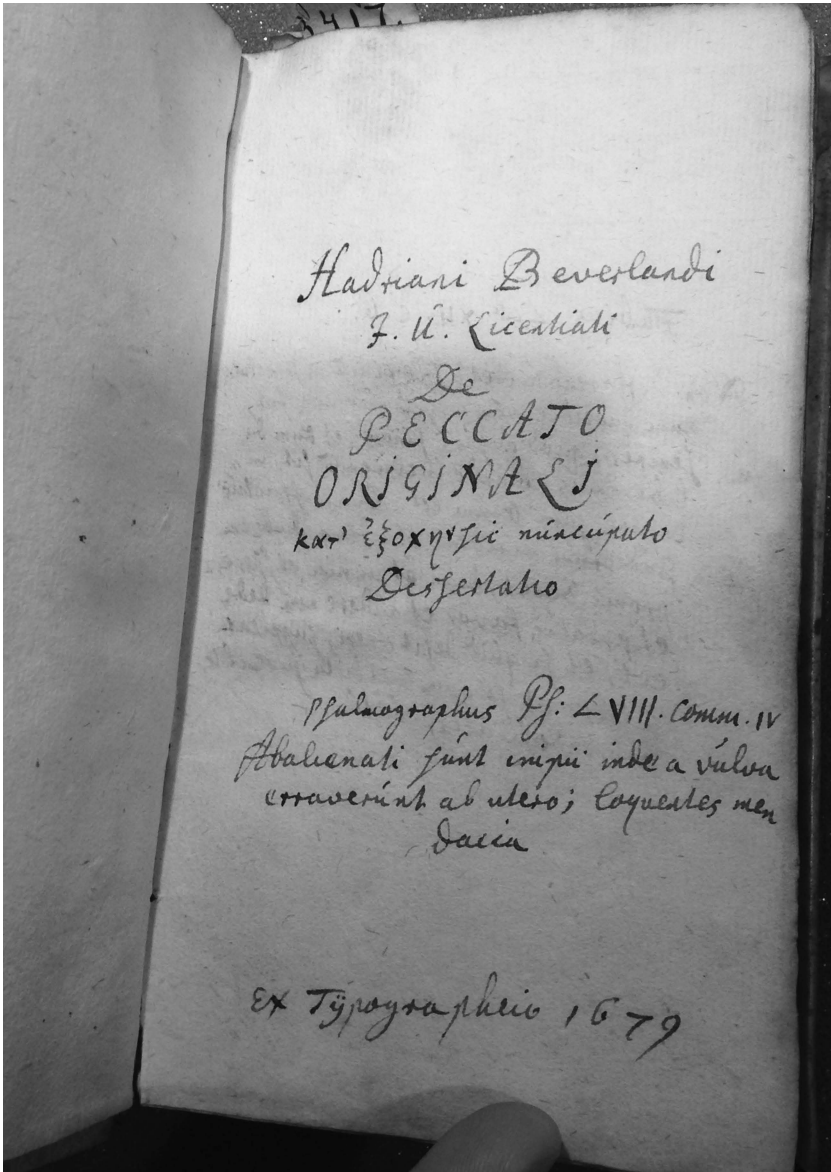 3417.
Hadriani Beverlandi
J. U. Licentiati
De
PECCATO
ORIGINALI
κατ' ἐξοχὴν sic nuncupato
Dissertatio
Psalmographus Ps: LVIII. Comm. IV
Abalienati sunt impii inde a vulva
erraverunt ab utero; loquentes men
dacia
Ex Typographeio 1679